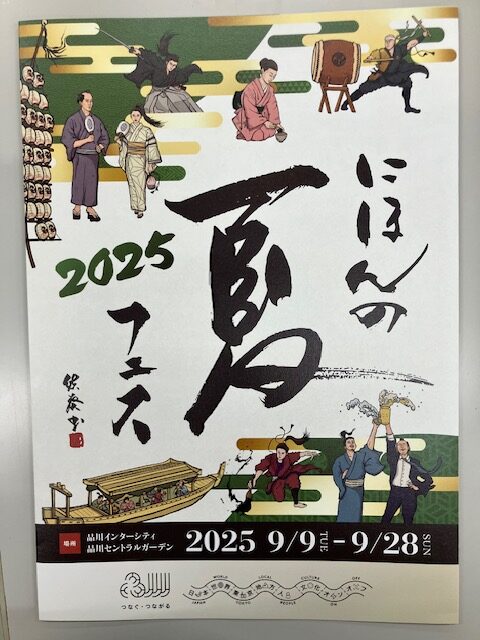 にほんの
夏
2025
フェス
場所
品川インターシティ
品川セントラルガーデン
2025 9/9 TUE - 9/28 SUN
つなぐ・つながる
WORLD LOCAL CULTURE OFF
JAPAN TOKYO PEOPLE ON